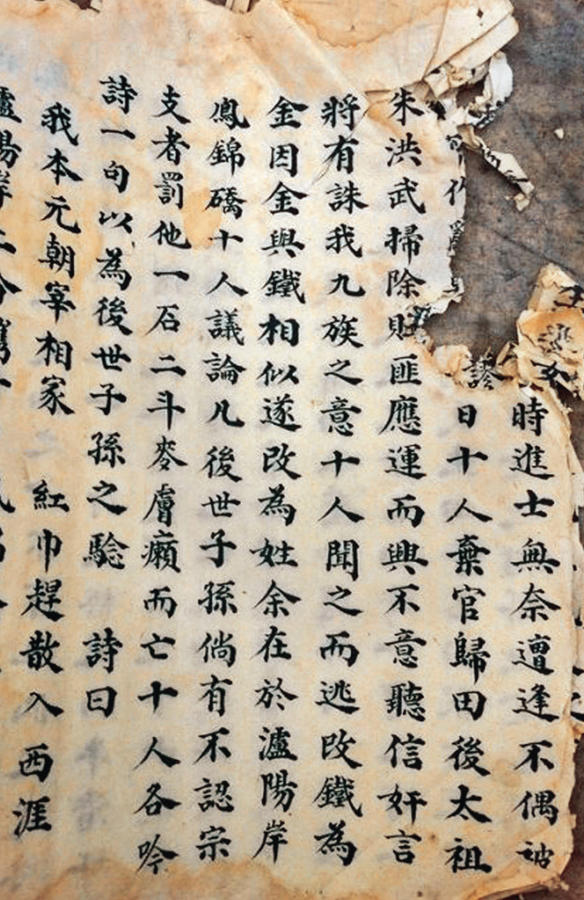 時進士無奈遭逢不偶被
謬日十人棄官歸田後太祖
朱洪武掃除財匪應運而興不意聽信奸言
將有誅我九族之意十人聞之而逃改鐵為
金因金與鐵相似遂改為姓余在於瀘陽岸
鳳錦礄十人議論凡後世子孫倘有不認宗
支者罰他一石二斗麥膚癩而亡十人各吟
詩一句以為後世子孫之騐 詩曰
我本元朝宰相家 紅巾趕散入西涯
瀘陽岸上分